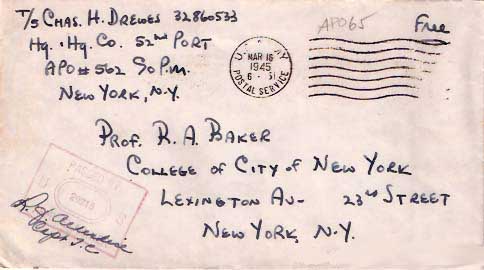 T/5 CHAS. H. DREWES 32860533
HQ. & HQ. CO. 52ND PORT
APO # 562 % P.M.
NEW YORK, N.Y.
U.S. ARMY
MAR 16
1945
POSTAL SERVICE
APO 65
Free
PROF. R. A. BAKER
COLLEGE OF CITY OF NEW YORK
LEXINGTON AV- 23RD STREET
NEW YORK, N.Y.
PASSED BY
U S
Capt T.C